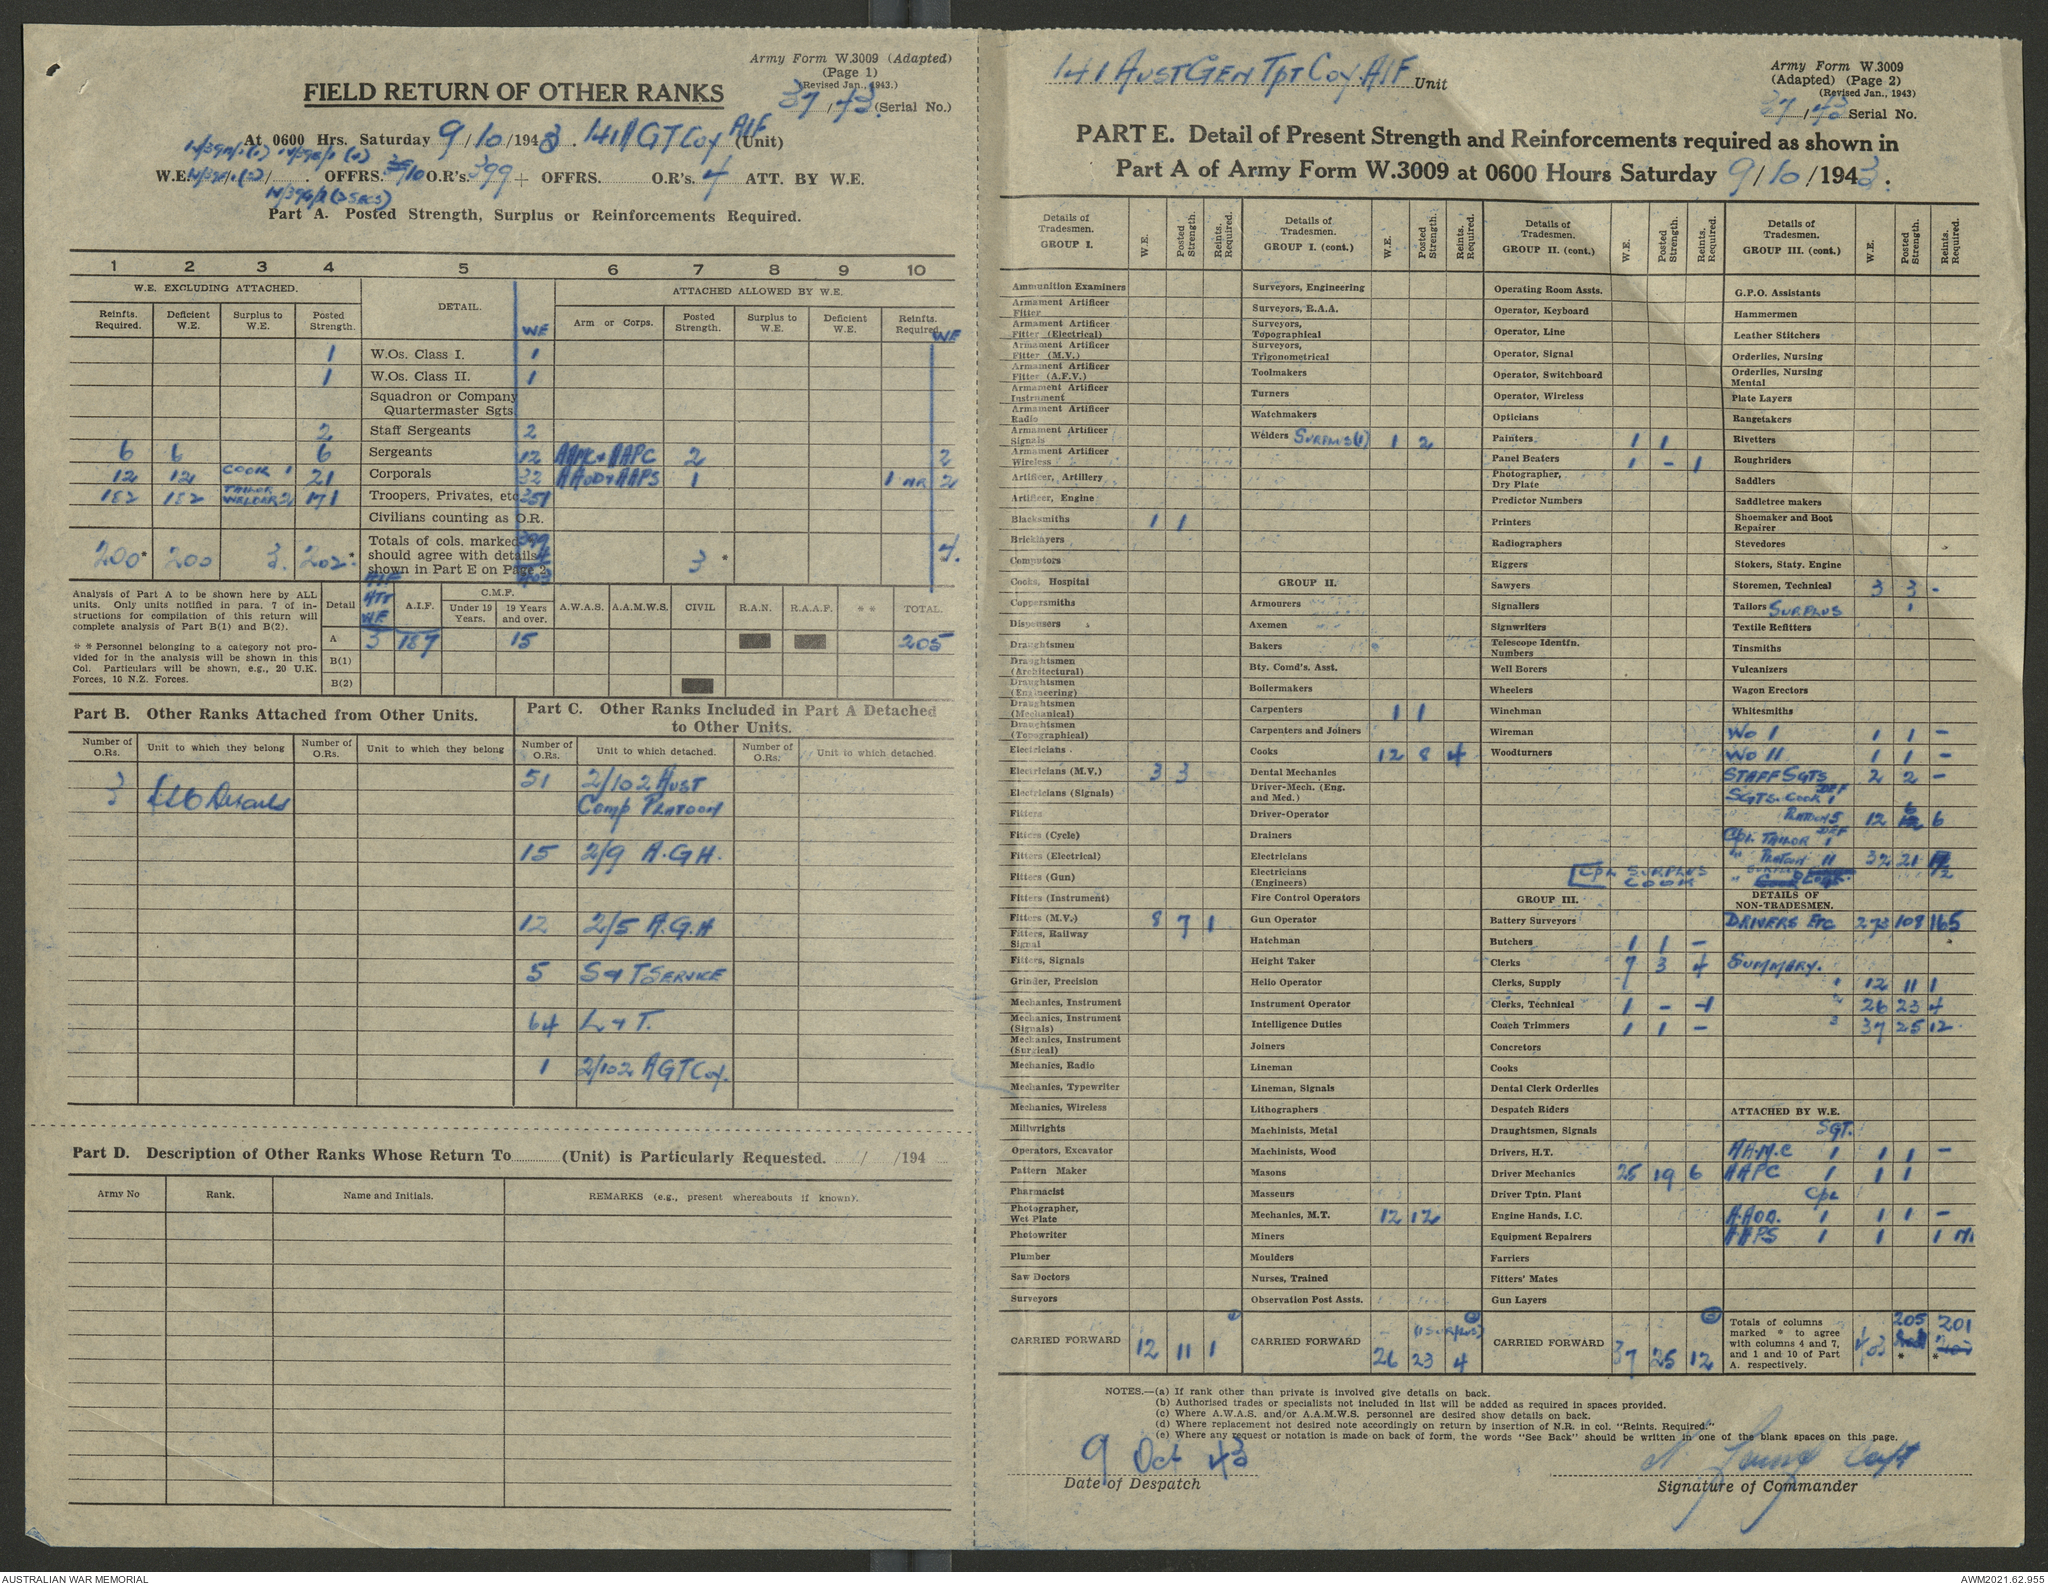 Army Form W.3009 (Adapted)
(Page 1)
(Revised Jan., 1943.)
FIELD RETURN OF OTHER RANKS
37/43 (Serial No.)
At 0600 Hrs. Saturday 9/10/1943. 141 A GT Coy AIF (Unit)
W.E. OFFRS. 10 O.R's. 399 + OFFRS. O.R's. 4 ATT. BY W.E.
Part A. Posted Strength, Surplus or Reinforcements Required.
1 2 3 4 5 6 7 8 9 10
W.E. EXCLUDING ATTACHED. DETAIL. ATTACHED ALLOWED BY W.E.
Reinfts. Required. Deficient W.E. Surplus to W.E. Posted Strength. WE Arm or Corps. Posted Strength. Surplus to W.E. Deficient W.E. Reinfts. Required. WE
1 W.Os. Class I. 1
1 W.Os. Class II. 1
Squadron or Company
Quartermaster Sgts
2 Staff Sergeants 2
6 6 6 Sergeants 12 AAMC + AAPC 2 2
12 12 COOK 1 21 Corporals 32 AAOD + AAPS 1 1 NR 2
182 182 TAILOR WELDER 2 171 Troopers, Privates, etc 351
Civilians counting as O.R.
Totals of cols. marked 399
should agree with details 4
shown in Part E on Page 2 403
200* 200 3. 202* 3 * 4.
Analysis of Part A to be shown here by ALL units. Only units notified in para. 7 of instructions for compilation of this return will complete analysis of Part B(1) and B(2).
* * Personnel belonging to a category not provided for in the analysis will be shown in this Col. Particulars will be shown, e.g., 20 U.K. Forces, 10 N.Z. Forces.
Detail AIF ATT WE A.I.F. C.M.F. Under 19 Years. 19 Years and over. A.W.A.S. A.A.M.W.S. CIVIL R.A.N. R.A.A.F. * * TOTAL.
A 3 187 15 205
B(1)
B(2)
Part B. Other Ranks Attached from Other Units.
Number of O.Rs. Unit to which they belong Number of O.Rs. Unit to which they belong
3 LSO Details
Part C. Other Ranks Included in Part A Detached to Other Units.
Number of O.Rs. Unit to which detached. Number of O.Rs. Unit to which detached.
51 2/102 AUST
COMP PLATOON
15 2/9 A.G.H.
12 2/5 A.G.H
5 S & T SERVICE
64 L & T.
1 2/102 A GT Coy.
Part D. Description of Other Ranks Whose Return To (Unit) is Particularly Requested. / /194
Army No Rank. Name and Initials. REMARKS (e.g., present whereabouts if known).
141 AUST GEN TPT COY. AIF Unit
Army Form W.3009
(Adapted) (Page 2)
(Revised Jan., 1943)
37/43 Serial No.
PART E. Detail of Present Strength and Reinforcements required as shown in
Part A of Army Form W.3009 at 0600 Hours Saturday 9/10/1943.
Details of Tradesmen. GROUP I. W.E. Posted Strength. Reints. Required.
Ammunition Examiners
Armament Artificer Fitter
Armament Artificer Fitter (Electrical)
Armament Artificer Fitter (M.V.)
Armament Artificer Fitter (A.F.V.)
Armament Artificer Instrument
Armament Artificer Radio
Armament Artificer Signals
Armament Artificer Wireless
Artificer, Artillery
Artificer, Engine
Blacksmiths 1 1
Bricklayers
Computors
Cooks, Hospital
Coppersmiths
Dispensers
Draughtsmen
Draughtsmen (Architectural)
Draughtsmen (Engineering)
Draughtsmen (Mechanical)
Draughtsmen (Topographical)
Electricians
Electricians (M.V.) 3 3
Electricians (Signals)
Fitters
Fitters (Cycle)
Fitters (Electrical)
Fitters (Gun)
Fitters (Instrument)
Fitters (M.V.) 8 7 1
Fitters, Railway Signal
Fitters, Signals
Grinder, Precision
Mechanics, Instrument
Mechanics, Instrument (Signals)
Mechanics, Instrument (Surgical)
Mechanics, Radio
Mechanics, Typewriter
Mechanics, Wireless
Millwrights
Operators, Excavator
Pattern Maker
Pharmacist
Photographer, Wet Plate
Photowriter
Plumber
Saw Doctors
Surveyors
CARRIED FORWARD 12 11 1
Details of Tradesmen. GROUP I. (cont.) W.E. Posted Strength. Reints. Required.
Surveyors, Engineering
Surveyors, R.A.A.
Surveyors, Topographical
Surveyors, Trigonometrical
Toolmakers
Turners
Watchmakers
Welders SURPLUS (1) 1 2
GROUP II.
Armourers
Axemen
Bakers
Bty. Comd's. Asst.
Boilermakers
Carpenters 1 1
Carpenters and Joiners
Cooks 12 8 4
Dental Mechanics
Driver-Mech. (Eng. and Med.)
Driver-Operator
Drainers
Electricians
Electricians (Engineers)
Fire Control Operators
Gun Operator
Hatchman
Height Taker
Helio Operator
Instrument Operator
Intelligence Duties
Joiners
Lineman
Lineman, Signals
Lithographers
Machinists, Metal
Machinists, Wood
Masons
Masseurs
Mechanics, M.T. 12 12
Miners
Moulders
Nurses, Trained
Observation Post Assts.
CARRIED FORWARD (1 SURPLUS) 26 23 4
Details of Tradesmen. GROUP II. (cont.) W.E. Posted Strength. Reints. Required.
Operating Room Assts.
Operator, Keyboard
Operator, Line
Operator, Signal
Operator, Switchboard
Operator, Wireless
Opticians
Painters 1 1
Panel Beaters 1 - 1
Photographer, Dry Plate
Predictor Numbers
Printers
Radiographers
Riggers
Sawyers
Signallers
Signwriters
Telescope Identfn. Numbers
Well Borers
Wheelers
Winchman
Wireman
Woodturners
CPL SURPLUS
COOK
GROUP III.
Battery Surveyors
Butchers 1 1 -
Clerks 7 3 4
Clerks, Supply
Clerks, Technical 1 - 1
Coach Trimmers 1 1 -
Concretors
Cooks
Dental Clerk Orderlies
Despatch Riders
Draughtsmen, Signals
Drivers, H.T.
Driver Mechanics 25 19 6
Driver Tptn. Plant
Engine Hands, I.C.
Equipment Repairers
Farriers
Fitters' Mates
Gun Layers
CARRIED FORWARD 37 25 12
Details of Tradesmen. GROUP III. (cont.) W.E. Posted Strength. Reints. Required.
G.P.O. Assistants
Hammermen
Leather Stitchers
Orderlies, Nursing
Orderlies, Nursing Mental
Plate Layers
Rangetakers
Rivetters
Roughriders
Saddlers
Saddletree makers
Shoemaker and Boot Repairer
Stevedores
Stokers, Staty. Engine
Storemen, Technical 3 3 -
Tailors SURPLUS 1
Textile Refitters
Tinsmiths
Vulcanizers
Wagon Erectors
Whitesmiths
WO I 1 1 -
WO II 1 1 -
STAFF SGTS 2 2 -
SGTS. COOK 1 DEF
PLATOON 5 12 6 6
CPL TAILOR 1 DEF
" PLATOON 11 32 21 12
DETAILS OF NON-TRADESMEN.
DRIVERS ETC 273 108 165
SUMMARY.
1 12 11 1
2 26 23 4
3 37 25 12
ATTACHED BY W.E.
SGT.
A.A.M.C 1 1 1 -
AAPC 1 1 1
CPL
A.AOD. 1 1 1 -
AAPS 1 1 1 NR
Totals of columns marked * to agree with columns 4 and 7, and 1 and 10 of Part A. respectively. 403 205 * 201 *
NOTES.—(a) If rank other than private is involved give details on back.
(b) Authorised trades or specialists not included in list will be added as required in spaces provided.
(c) Where A.W.A.S. and/or A.A.M.W.S. personnel are desired show details on back.
(d) Where replacement not desired note accordingly on return by insertion of N.R. in col. "Reints. Required."
(e) Where any request or notation is made on back of form, the words "See Back" should be written in one of the blank spaces on this page.
9 Oct 43
Date of Despatch
Capt
Signature of Commander
AUSTRALIAN WAR MEMORIAL
AWM2021.62.955